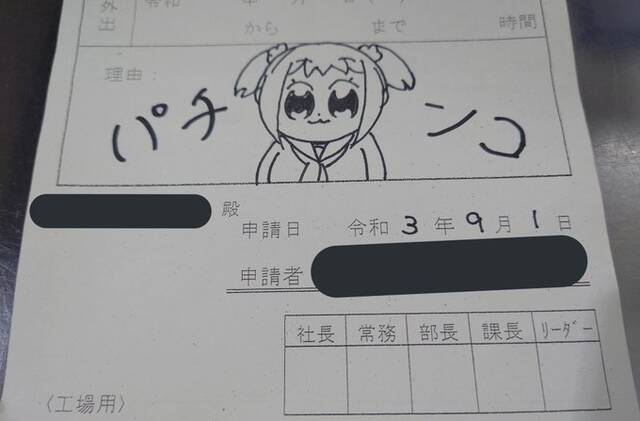 外出
から まで 時間
理由：
パチンコ
殿
申請日 令和 3 年 9 月 1 日
申請者
社長 常務 部長 課長 リーダー
〈工場用〉